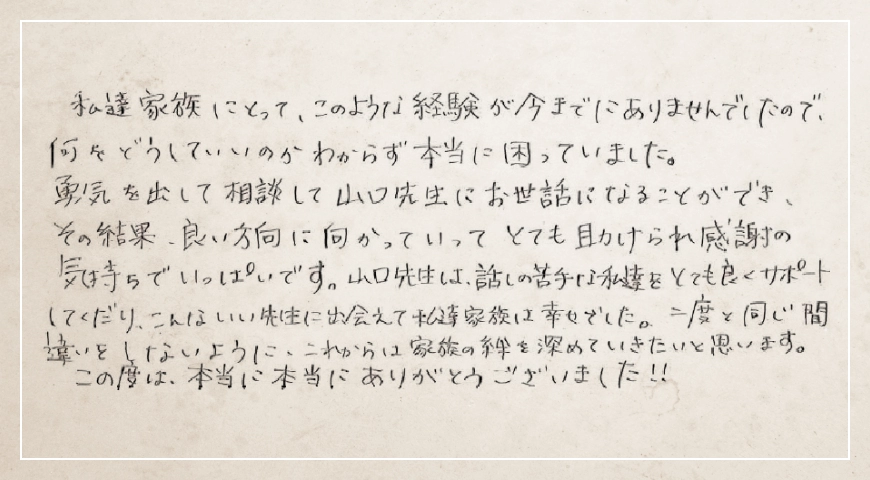 私達家族にとって、このような経験が今までにありませんでしたので、
何をどうしていいのかわからず本当に困っていました。
勇気を出して相談して山口先生にお世話になることができ、
その結果、良い方向に向かっていってとても助けられ感謝の
気持ちでいっぱいです。山口先生は、話しの苦手な私達をとても良くサポート
してくだり、こんないい先生に出会えて私達家族は幸せでした。二度と同じ間
違いをしないように、これからは家族の絆を深めていきたいと思います。
この度は、本当に本当にありがとうございました!!